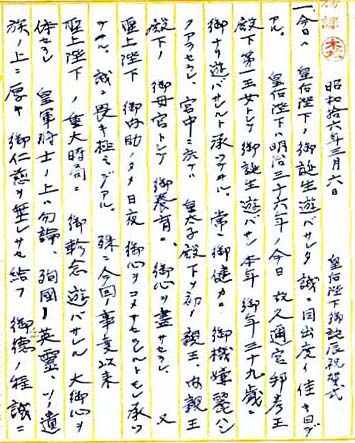 昭和拾六年三月六日　皇后陛下御誕辰祝賀式
一、今日ハ　皇后陛下ノ御誕生遊バサレタ誠ニ目出度イ佳キ日デ
アル。　皇后陛下ハ明治三十六年ノ今日　故久邇宮邦彦王
殿下第一王女トシテ御誕生遊バサレ本年御年三十九歳ニ
御ナリ遊バサレルト承ハツテヰル。常ニ御健カニ御機嫌麗ハシ
クアラセラレ、宮中ニ於テハ　皇太子殿下ヲ初メ親王、内親王
殿下ノ御母宮トシテ　御養育ニ御心ヲ盡サセラレ　又
聖上陛下　御内助ノタメ日夜　御心ヲコメサセラレルト承ハツ
テヰル。誠ニ畏キ極ミデアル。　殊ニ今回ノ事変以来
聖上陛下ノ重大時局ニ　御軫念遊バサレル大御心ヲ
体セラレ　皇軍将士ノ上ハ勿論、殉国ノ英霊、ソノ遺
族ノ上ニ厚キ御仁慈ヲ垂レサセ給フ　御徳ノ程誠ニ